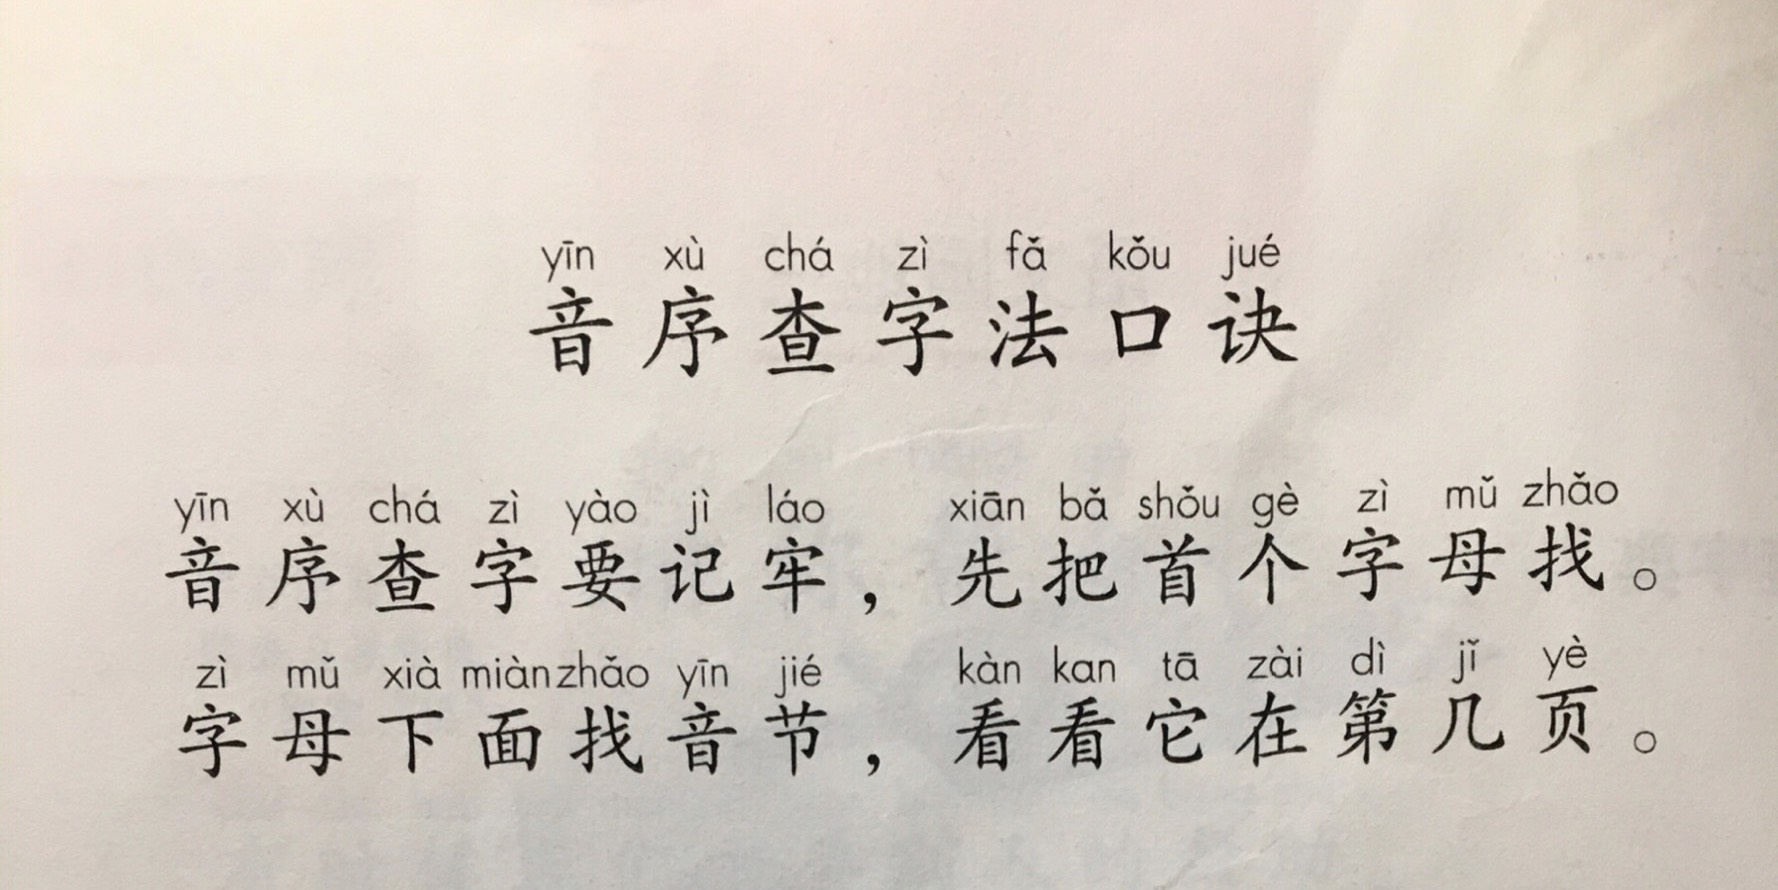 yīn xù chá zì fǎ kǒu jué
音序查字法口诀
yīn xù chá zì yào jì láo xiān bǎ shǒu gè zì mǔ zhǎo
音序查字要记牢，先把首个字母找。
zì mǔ xià miàn zhǎo yīn jié kàn kan tā zài dì jǐ yè
字母下面找音节，看看它在第几页。